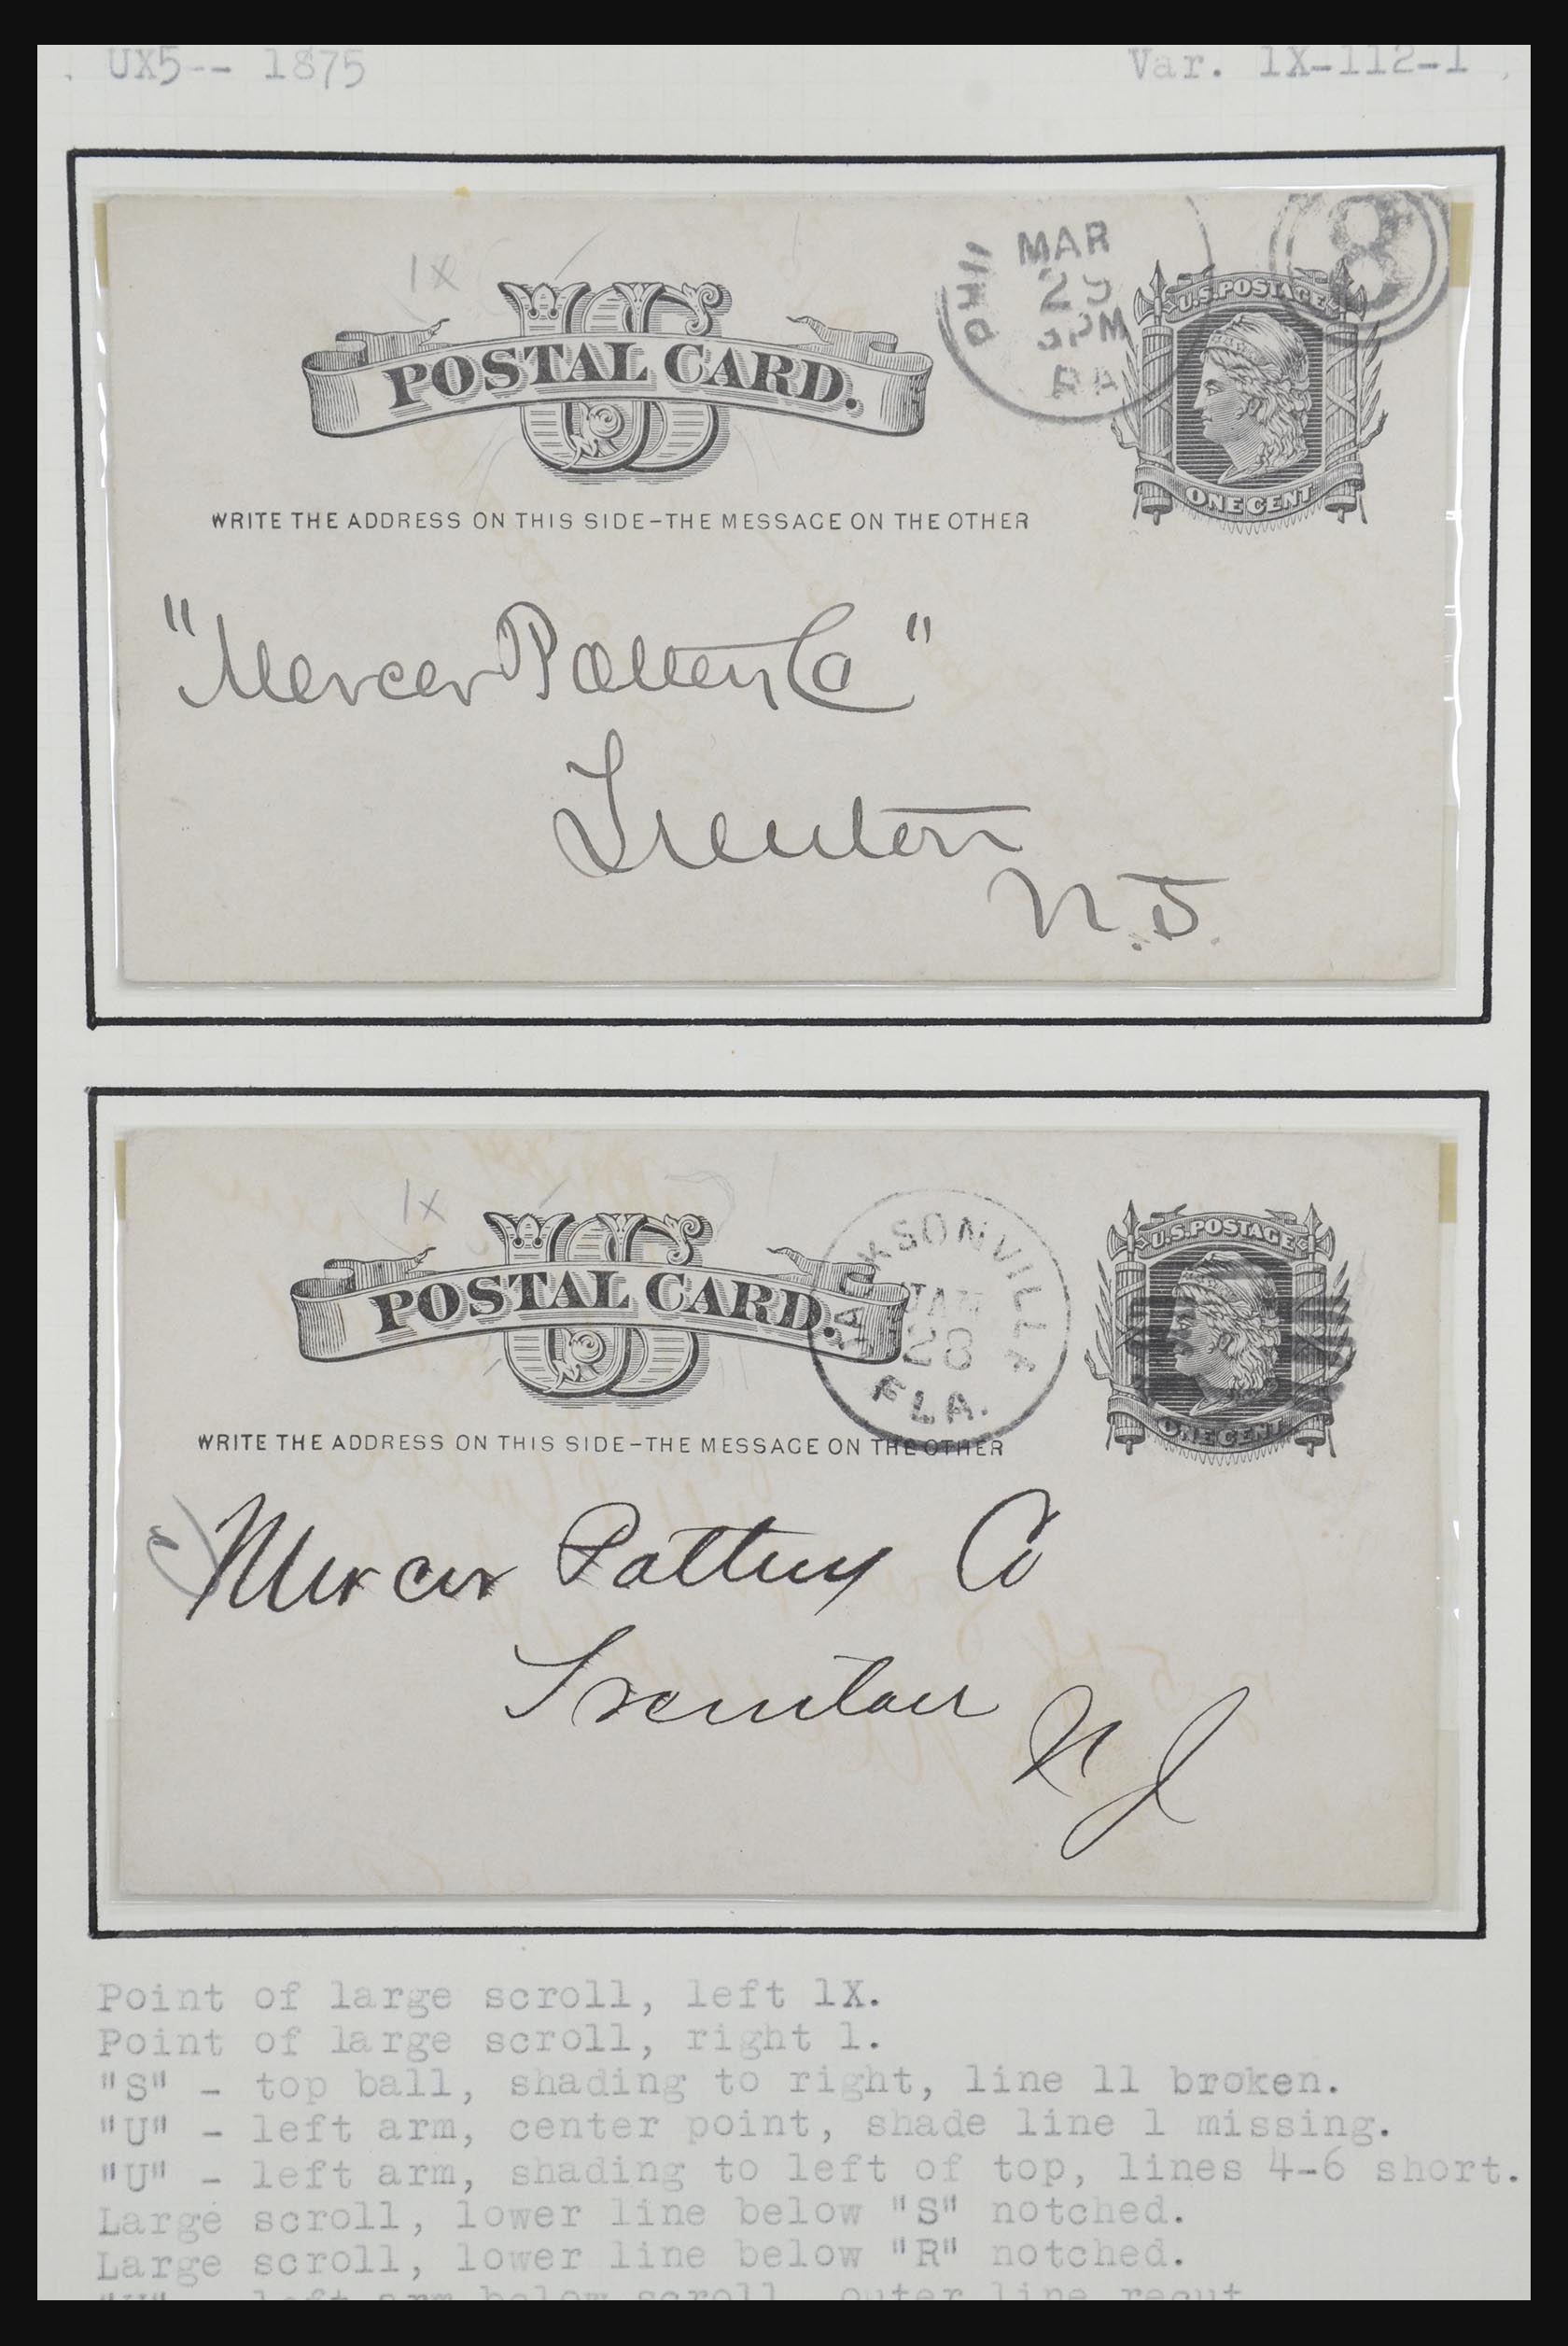 UX5-- 1875
Var. 1X-112-1
1X
MAR
8
PA
POSTAL CARD.
U.S. POSTAGE
ONE CENT
WRITE THE ADDRESS ON THIS SIDE-THE MESSAGE ON THE OTHER
"Mercer Pottery Co"
Trenton
N.J.
1X
US
POSTAL CARD.
JACKSONVILLE
JAN
28
FLA.
U.S. POSTAGE
ONE CENT
WRITE THE ADDRESS ON THIS SIDE-THE MESSAGE ON THE OTHER
Mercer Pottery Co
Trenton
N J
Point of large scroll, left 1X.
Point of large scroll, right 1.
"S" - top ball, shading to right, line 11 broken.
"U" - left arm, center point, shade line 1 missing.
"U" - left arm, shading to left of top, lines 4-6 short.
Large scroll, lower line below "S" notched.
Large scroll, lower line below "R" notched.
"U" - left arm below scroll, outer line recut